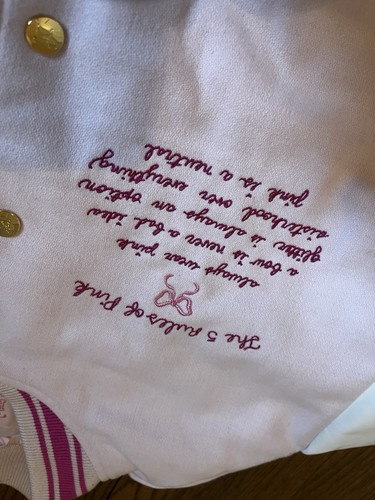 The 5 Rules of Pink
always wear pink
a bow is never a bad idea
glitter is always an option
sisterhood over everything
pink is a neutral